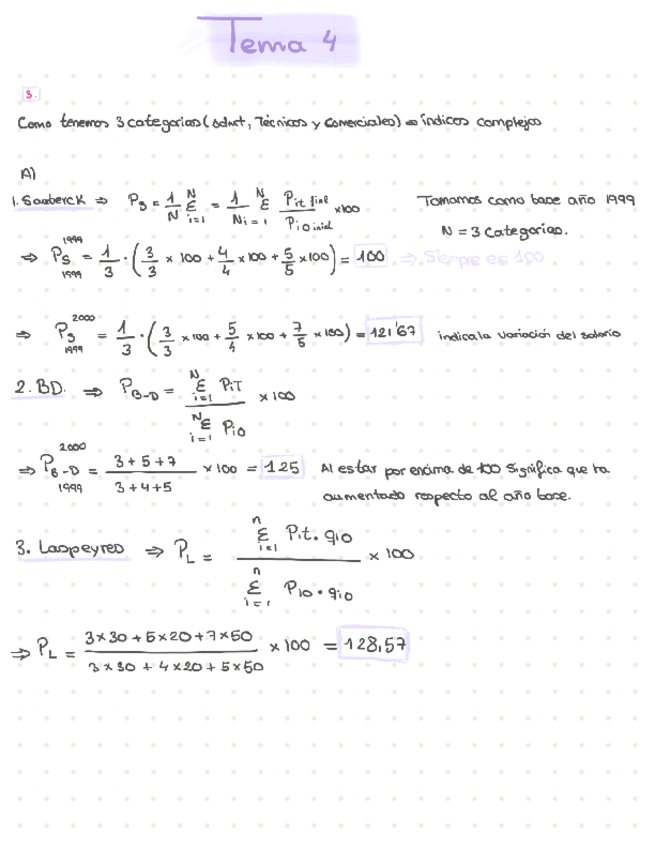 Tema 4
3.
Como tenemos 3 categorías (admt, Técnicos y Comerciales) => índices complejos
A)
1. Sauberck => Ps = 1/N Σ i=1 N = 1/N Σ i=1 N Pit final / Pio inicial x100
Tomamos como base año 1999
N = 3 categorías.
=> Ps 1999/1999 = 1/3 · (3/3 x 100 + 4/4 x 100 + 5/5 x 100) = 100 => Siempre es 100
=> Ps 2000/1999 = 1/3 · (3/3 x 100 + 5/4 x 100 + 7/5 x 100) = 121'67 indica la variación del salario
2. BD. => PB-D = Σ i=1 N PiT / Σ i=1 N Pio x 100
=> PB-D 2000/1999 = 3+5+7 / 3+4+5 x 100 = 125 Al estar por encima de 100 significa que ha
aumentado respecto al año base.
3. Laspeyres => PL = Σ i=1 n Pit. qio / Σ i=1 n Pio · qio x 100
=> PL = 3x30 + 5x20 + 7x50 / 3x30 + 4x20 + 5x50 x 100 = 128,57